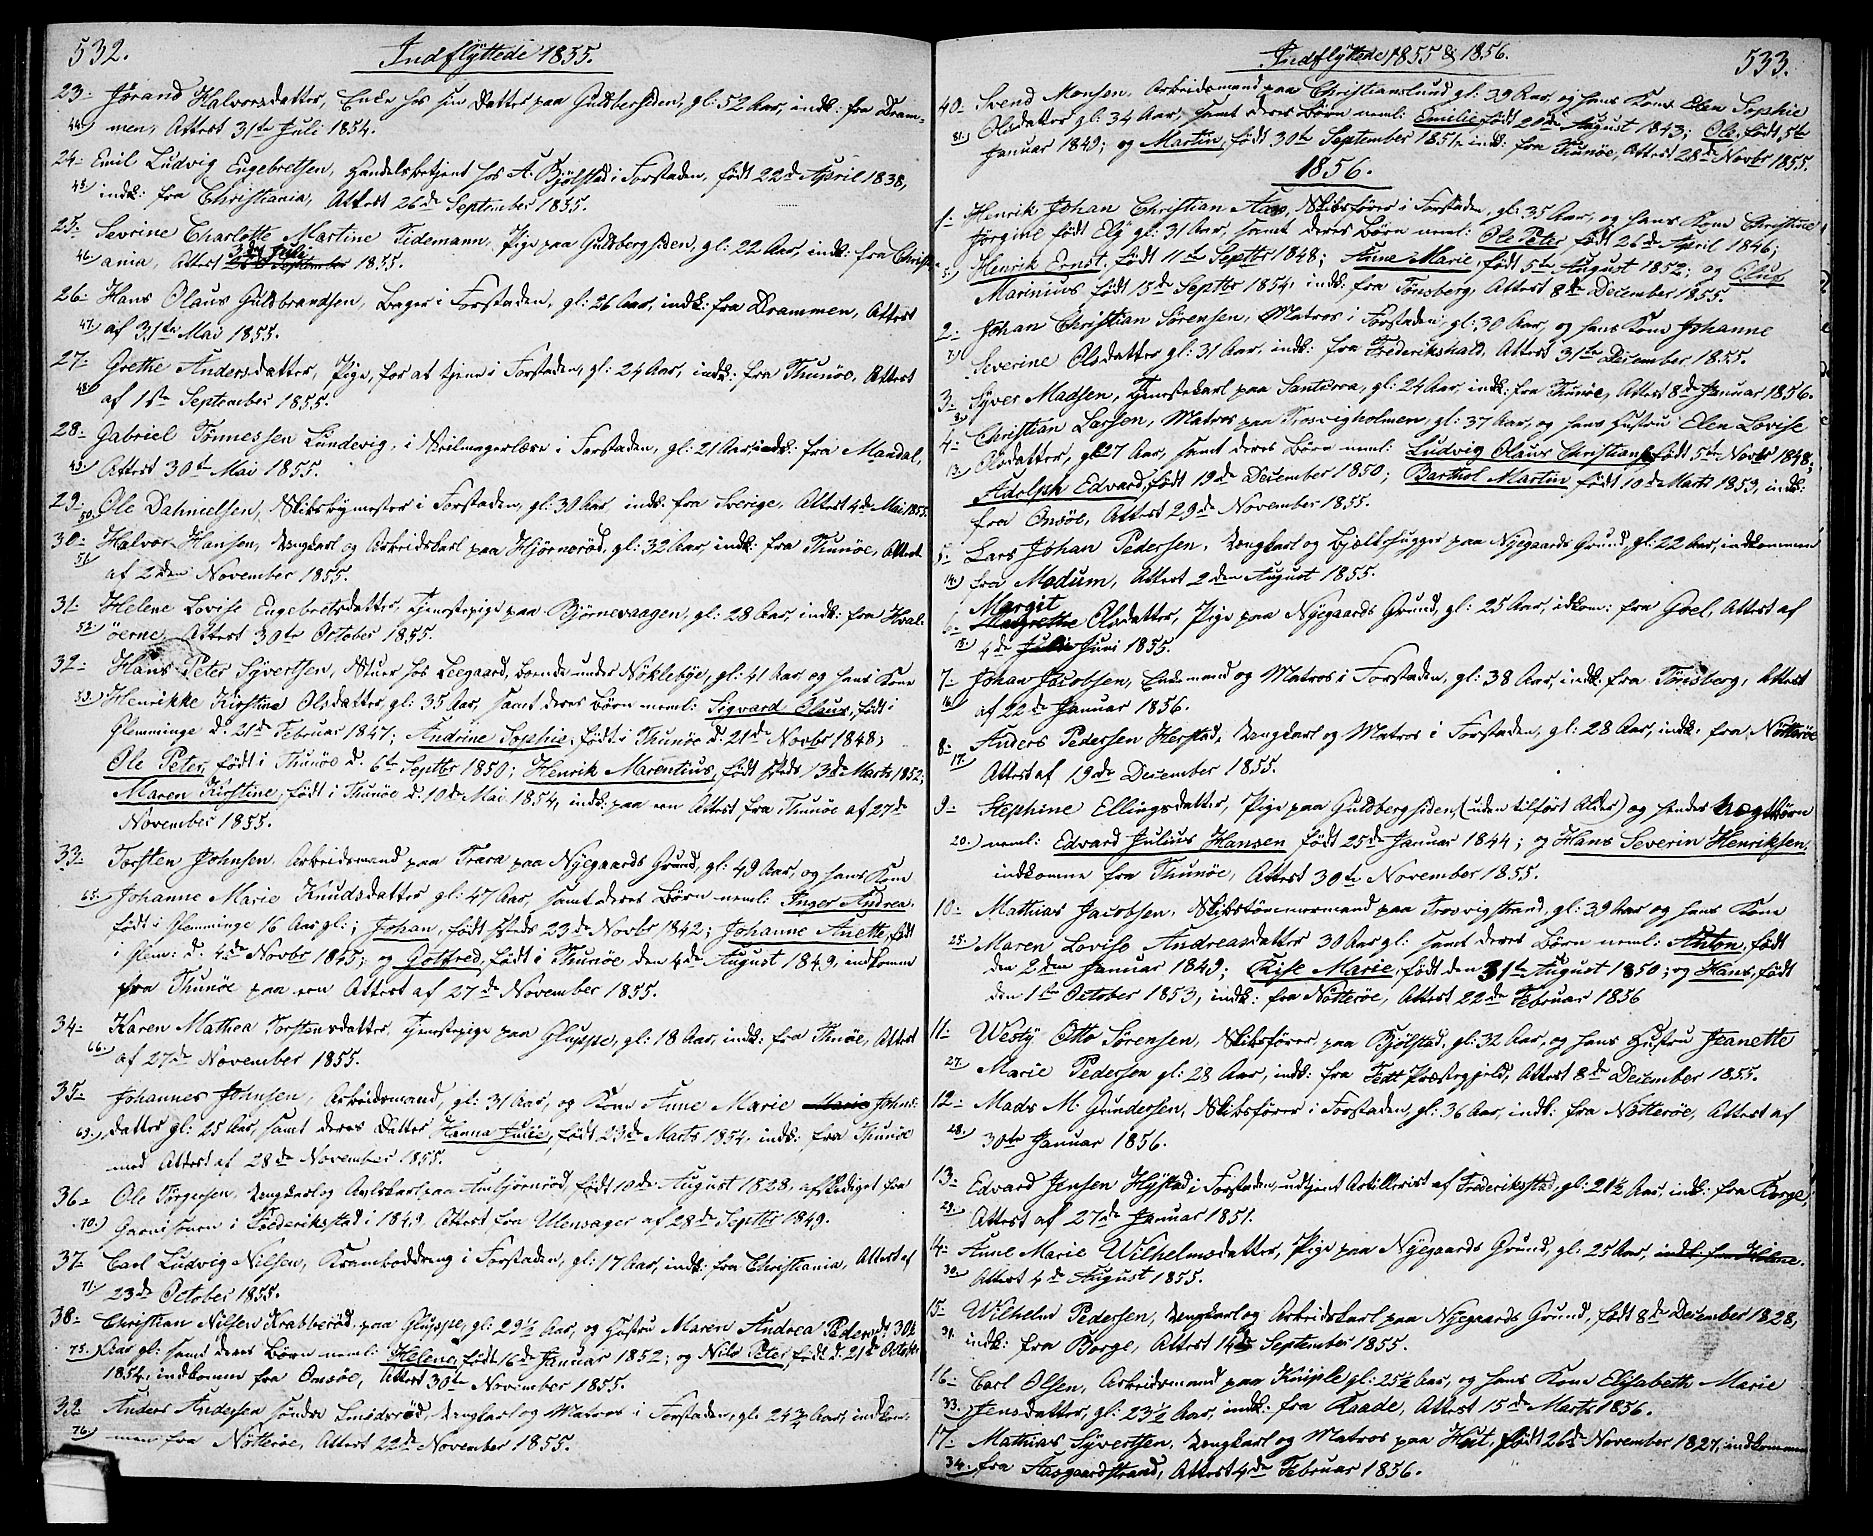 532.
Indflyttede 1855.
23- Jørand Halvorsdatter, Enke hos sin Datter paa Guldbersiden, gl: 52 Aar, indk: fra Dram-
44) men, Attest 31te Juli 1854.
24- Emil Ludvig Engebretsen, Handelsbetjent hos A. Bjølstad i Forstaden, født 22de April 1838,
45) indk: fra Christiania, Attest 26de September 1855.
25- Sevrine Charlotte Martine Tidemann, Pige paa Guldbergsiden, gl: 22 Aar, indk: fra Christi-
46) ania, Attest 3die Juli 1855.
26- Hans Olaus Guldbrandsen, Bager i Forstaden, gl: 26 Aar, indk: fra Drammen, Attest
47) af 31te Mai 1855.
27- Grethe Andersdatter, Pige, for at tjene i Forstaden, gl: 24 Aar, indk: fra Thunøe, Attest
48) af 1ste September 1855.
28- Gabriel Tønnessen Lundevig, i Seilmagerlære i Forstaden, gl: 21 Aar, indk: fra Mandal,
49) Attest 30te Mai 1855.
29- Ole Dahnielsen, Skibsbygmester i Forstaden, gl: 30 Aar indk: fra Sverige, Attest 4de Mai 1855.
50.
30- Halvor Hansen, Ungkarl og Arbeidskarl paa Hjørnerød, gl: 32 Aar, indk: fra Thunøe, Attest
51) af 2den November 1855.
31- Helene Lovise Engebretsdatter, Tjenestepige paa Bjørnevaagen, gl: 28 Aar, indk: fra Hval-
52) øerne, Attest 30te October 1855.
32- Hans Peter Syvertsen, Stuer hos Leegaard, boende under Nøklebye, gl: 41 Aar og hans Kone
Henrikke Kirstine Olsdatter, gl: 35 Aar, samt deres Børn neml: Sigvard Olaus, født i
Glemminge d. 21de Februar 1847; Andrine Sophie, født i Thunøe d. 21de Novbr 1848;
Ole Peter, født i Thunøe d. 6te Septbr 1850; Henrik Marentius, født sts 13de Marts 1852;
Maren Kirstine, født i Thunøe d: 10de Mai 1854, indk: paa een Attest fra Thunøe af 27de
November 1855.
33- Torsten Johnsen, Arbeidsmand paa Trara paa Nyegaards Grund, gl: 49 Aar, og hans Kone
65) Johanne Marie Knudsdatter gl: 47 Aar, samt deres Børn neml: Inger Andrea,
født i Glemminge 16 Aar gl:; Johan, født sts 23de Novbr 1842; Johanne Anette, født
i Glem: d. 4de Novbr 1845; og Gotfred, født i Thunøe den 4de August 1849, indkomne
fra Thunøe paa een Attest af 27de November 1855.
34- Karen Mathea Torstensdatter, Tjenestepige paa Gluppe, gl: 18 Aar, indk: fra Thunøe, Attest
66. af 27de November 1855.
35- Johannes Johnsen, Arbeidsmand, gl: 31 Aar, og Kone Anne Marie Marie Johns-
69) datter gl: 25 Aar, samt deres Datter Hanna Julie, født 23de Marts 1854, indk: fra Thunøe
med Attest af 28de November 1855.
36- Ole Torgersen, Ungkarl og Avlskarl paa Ambjørnrød, født 10de August 1828, afskediget fra
70.) Garnisonen i Frederikstad i 1849, Attest fra Ulensager af 28de Septbr 1849.
37- Carl Ludvig Nilsen, Kramboddreng i Forstaden, gl: 17 Aar, indk: fra Christiania, Attest af
71) 23de October 1855.
38- Christian Nilsen Krabberød, paa Gluppe, gl: 29½ Aar, og Hustru Maren Andrea Pedersdt 30½
75) Aar gl: samt deres Børn neml: Helene, født 16de Januar 1852; og Nils Peter, født d. 21de October
1854, indkomne fra Onsøe, Attest 30te November 1855.
39- Anders Andersen søndre Smidsrød, Ungkarl og Matros i Forstaden, gl: 24¾ Aar, indkom-
76) men fra Nøtterøe, Attest 22de November 1855.
Indflyttede 1855 & 1856.
533.
40- Svend Monsen, Arbeidsmand paa Christianslund gl: 39 Aar, og hans Kone Elen Sophie
81) Olsdatter gl: 34 Aar, samt deres Børn neml: Emilie, født 20de August 1843; Ole, født 5te
Januar 1849; og Martin, født 30te September 1851, indk: fra Thunøe, Attest 28de Novbr 1855.
1856.
1- Henrik Johan Christian Aas, Skibsfører i Forstaden, gl: 35 Aar, og hans Kone Christine
Jørgine født Ely gl: 31 Aar, samt deres Børn neml: Ole Peter født 26de April 1846;
5) Henrik Ernst, født 11te Septbr 1848; Anne Marie, født 5te August 1852; og Oluf
Marinius født 15de Septbr 1854, indk: fra Tønsberg, Attest 8de December 1855.
2- Johan Christian Sørensen, Matros i Forstaden, gl: 30 Aar, og hans Kone Johanne
7) Severine Olsdatter gl: 31 Aar, indk: fra Frederikshald, Attest 31te December 1855.
3- Syver Madsen, Tjenestekarl paa Santerra, gl: 24 Aar, indk: fra Thunøe, Attest 8de Januar 1856.
4- Christian Larsen, Matros paa Trosvigholmen, gl: 37 Aar, og hans Hustru Elen Lovise
13) Olsdatter, gl: 27 Aar, samt deres Børn neml: Ludvig Olaus Christian, født 5te Novbr 1848;
Adolph Edvard, født 19de December 1850; Barthol Martin, født 10de Marts 1853, indk:
fra Onsøe, Attest 29de November 1855.
5- Lars Johan Pedersen, Ungkarl og Bjælkhugger paa Nyegaards Grund, gl: 22 Aar, indkommen
14) fra Modum, Attest 2den August 1855.
6- Margit Olsdatter, Pige paa Nyegaards Grund, gl: 25 Aar, idkom: fra Goel, Attest af
15) 4de Juni 1855.
7- Johan Jacobsen, Enkemand og Matros i Forstaden, gl: 38 Aar, indk: fra Tønsberg, Attest
16) af 22de Januar 1856.
8- Anders Pedersen Herstad, Ungkarl og Matros i Forstaden, gl: 28 Aar, indk: fra Nøtterøe
17. Attest af 19de December 1855.
9- Stephine Ellingsdatter, Pige paa Guldbergsiden, (uden tilført Alder) og hendes uægtebørn
20.) neml: Edvard Julius Hansen født 25de Januar 1844; og Hans Severin Henriksen,
indkomne fra Thunøe, Attest 30te November 1855.
10- Mathias Jacobsen, Skibstømmermand paa Trosvigstrand, gl: 39 Aar og hans Kone
25) Maren Lovise Andreasdatter 30 Aar gl: samt deres Børn neml: Anton, født
den 2den Januar 1849; Rise Marie, født den 31te August 1850; og Hans, født
den 1ste October 1853, indk: fra Nøtterøe, Attest 22de Februar 1856
11- Westy Otto Sørensen, Skibsfører paa Bjølstad, gl: 32 Aar, og hans Hustru Jeanette
27) Marie Pedersen gl: 28 Aar, indk: fra Tedt Præstegjeld, Attest 8de December 1855.
12- Mads M: Gundersen, Skibsfører i Forstaden, gl: 36 Aar, indk: fra Nøtterøe, Attest af
28. 30te Januar 1856.
13- Edvard Jensen Hystad i Forstaden, udtjent Artillerist af Frederikstad, gl: 21½ Aar, indk: fra Borge,
29. Attest af 27de Januar 1851.
14- Anne Marie Wilhelmsdatter, Pige paa Nyegaards Grund, gl: 25 Aar, indk: fra Helene.
30) Attest 4de August 1855.
15- Wilhelm Pedersen, Ungkarl og Arbeidskarl paa Nyegaards Grund, født 8de December 1828,
31. indk: fra Borge, Attest 14de September 1855.
16- Carl Olsen, Arbeidsmand paa Kniple gl: 25½ Aar, og hans Kone Elisabeth Marie
33. Jensdatter, gl: 23½ Aar, indk: fra Raade, Attest 15de Marts 1856.
17- Mathias Syvertsen, Ungkarl og Matros paa Hut, født 26de November 1827, indkommen
34. fra Aasgaardstrand, Attest 4de Februar 1856.